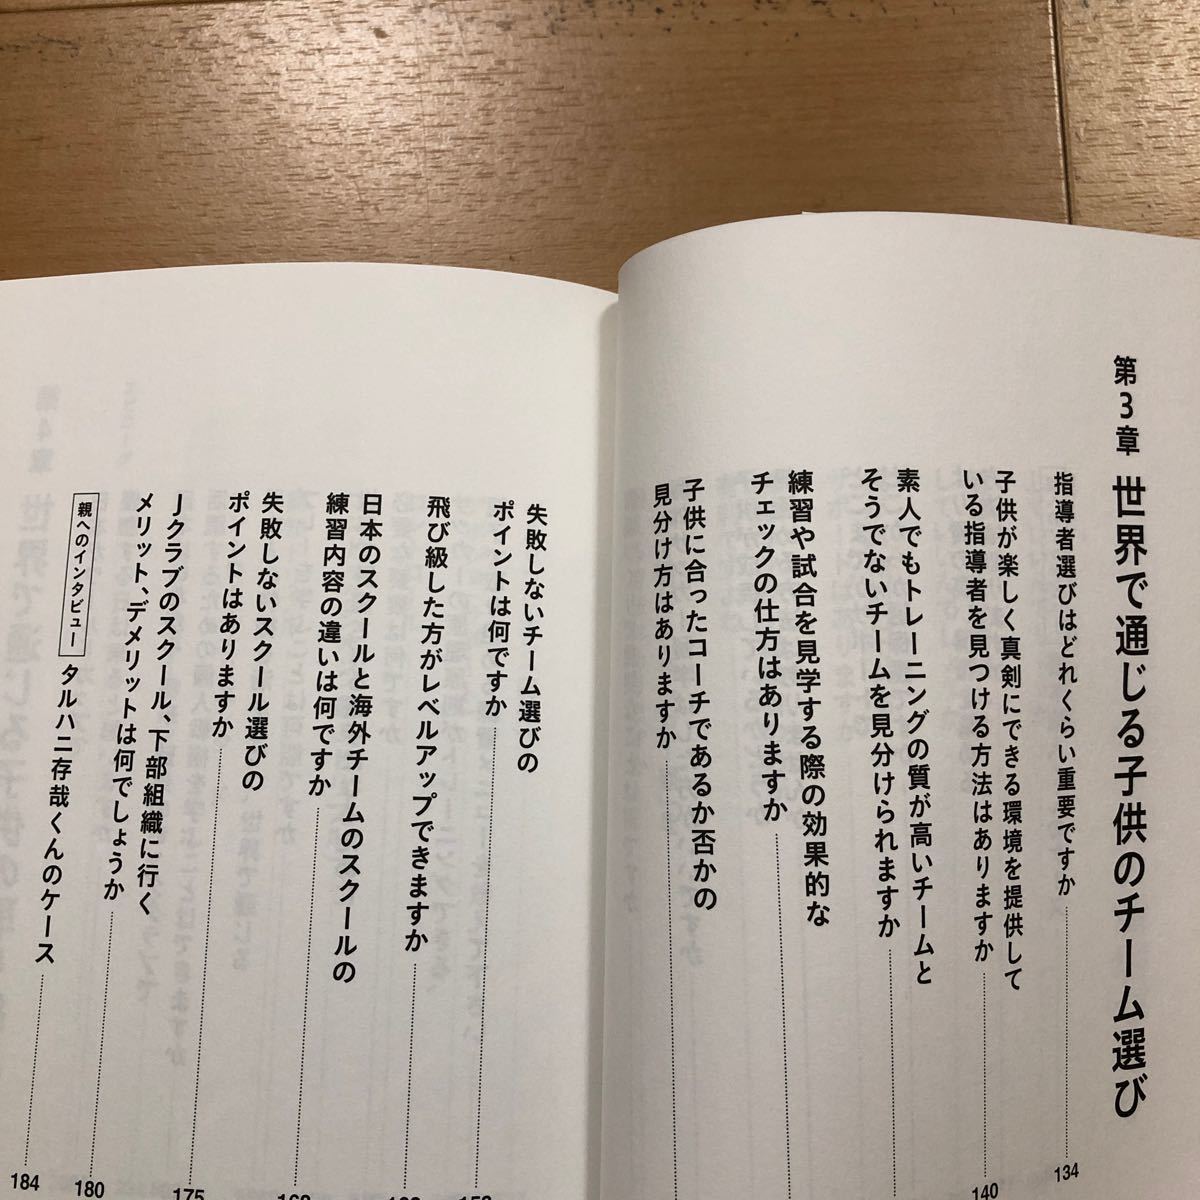 第3章 世界で通じる子供のチーム選び
指導者選びはどれくらい重要ですか 134
子供が楽しく真剣にできる環境を提供して
いる指導者を見つける方法はありますか 140
素人でもトレーニングの質が高いチームと
そうでないチームを見分けられますか
練習や試合を見学する際の効果的な
チェックの仕方はありますか
子供に合ったコーチであるか否かの
見分け方はありますか
失敗しないチーム選びの
ポイントは何ですか
飛び級した方がレベルアップできますか
日本のスクールと海外チームのスクールの
練習内容の違いは何ですか
失敗しないスクール選びの
ポイントはありますか 175
Jクラブのスクール、下部組織に行く
メリット、デメリットは何でしょうか 180
親へのインタビュー タルハニ存哉くんのケース 184